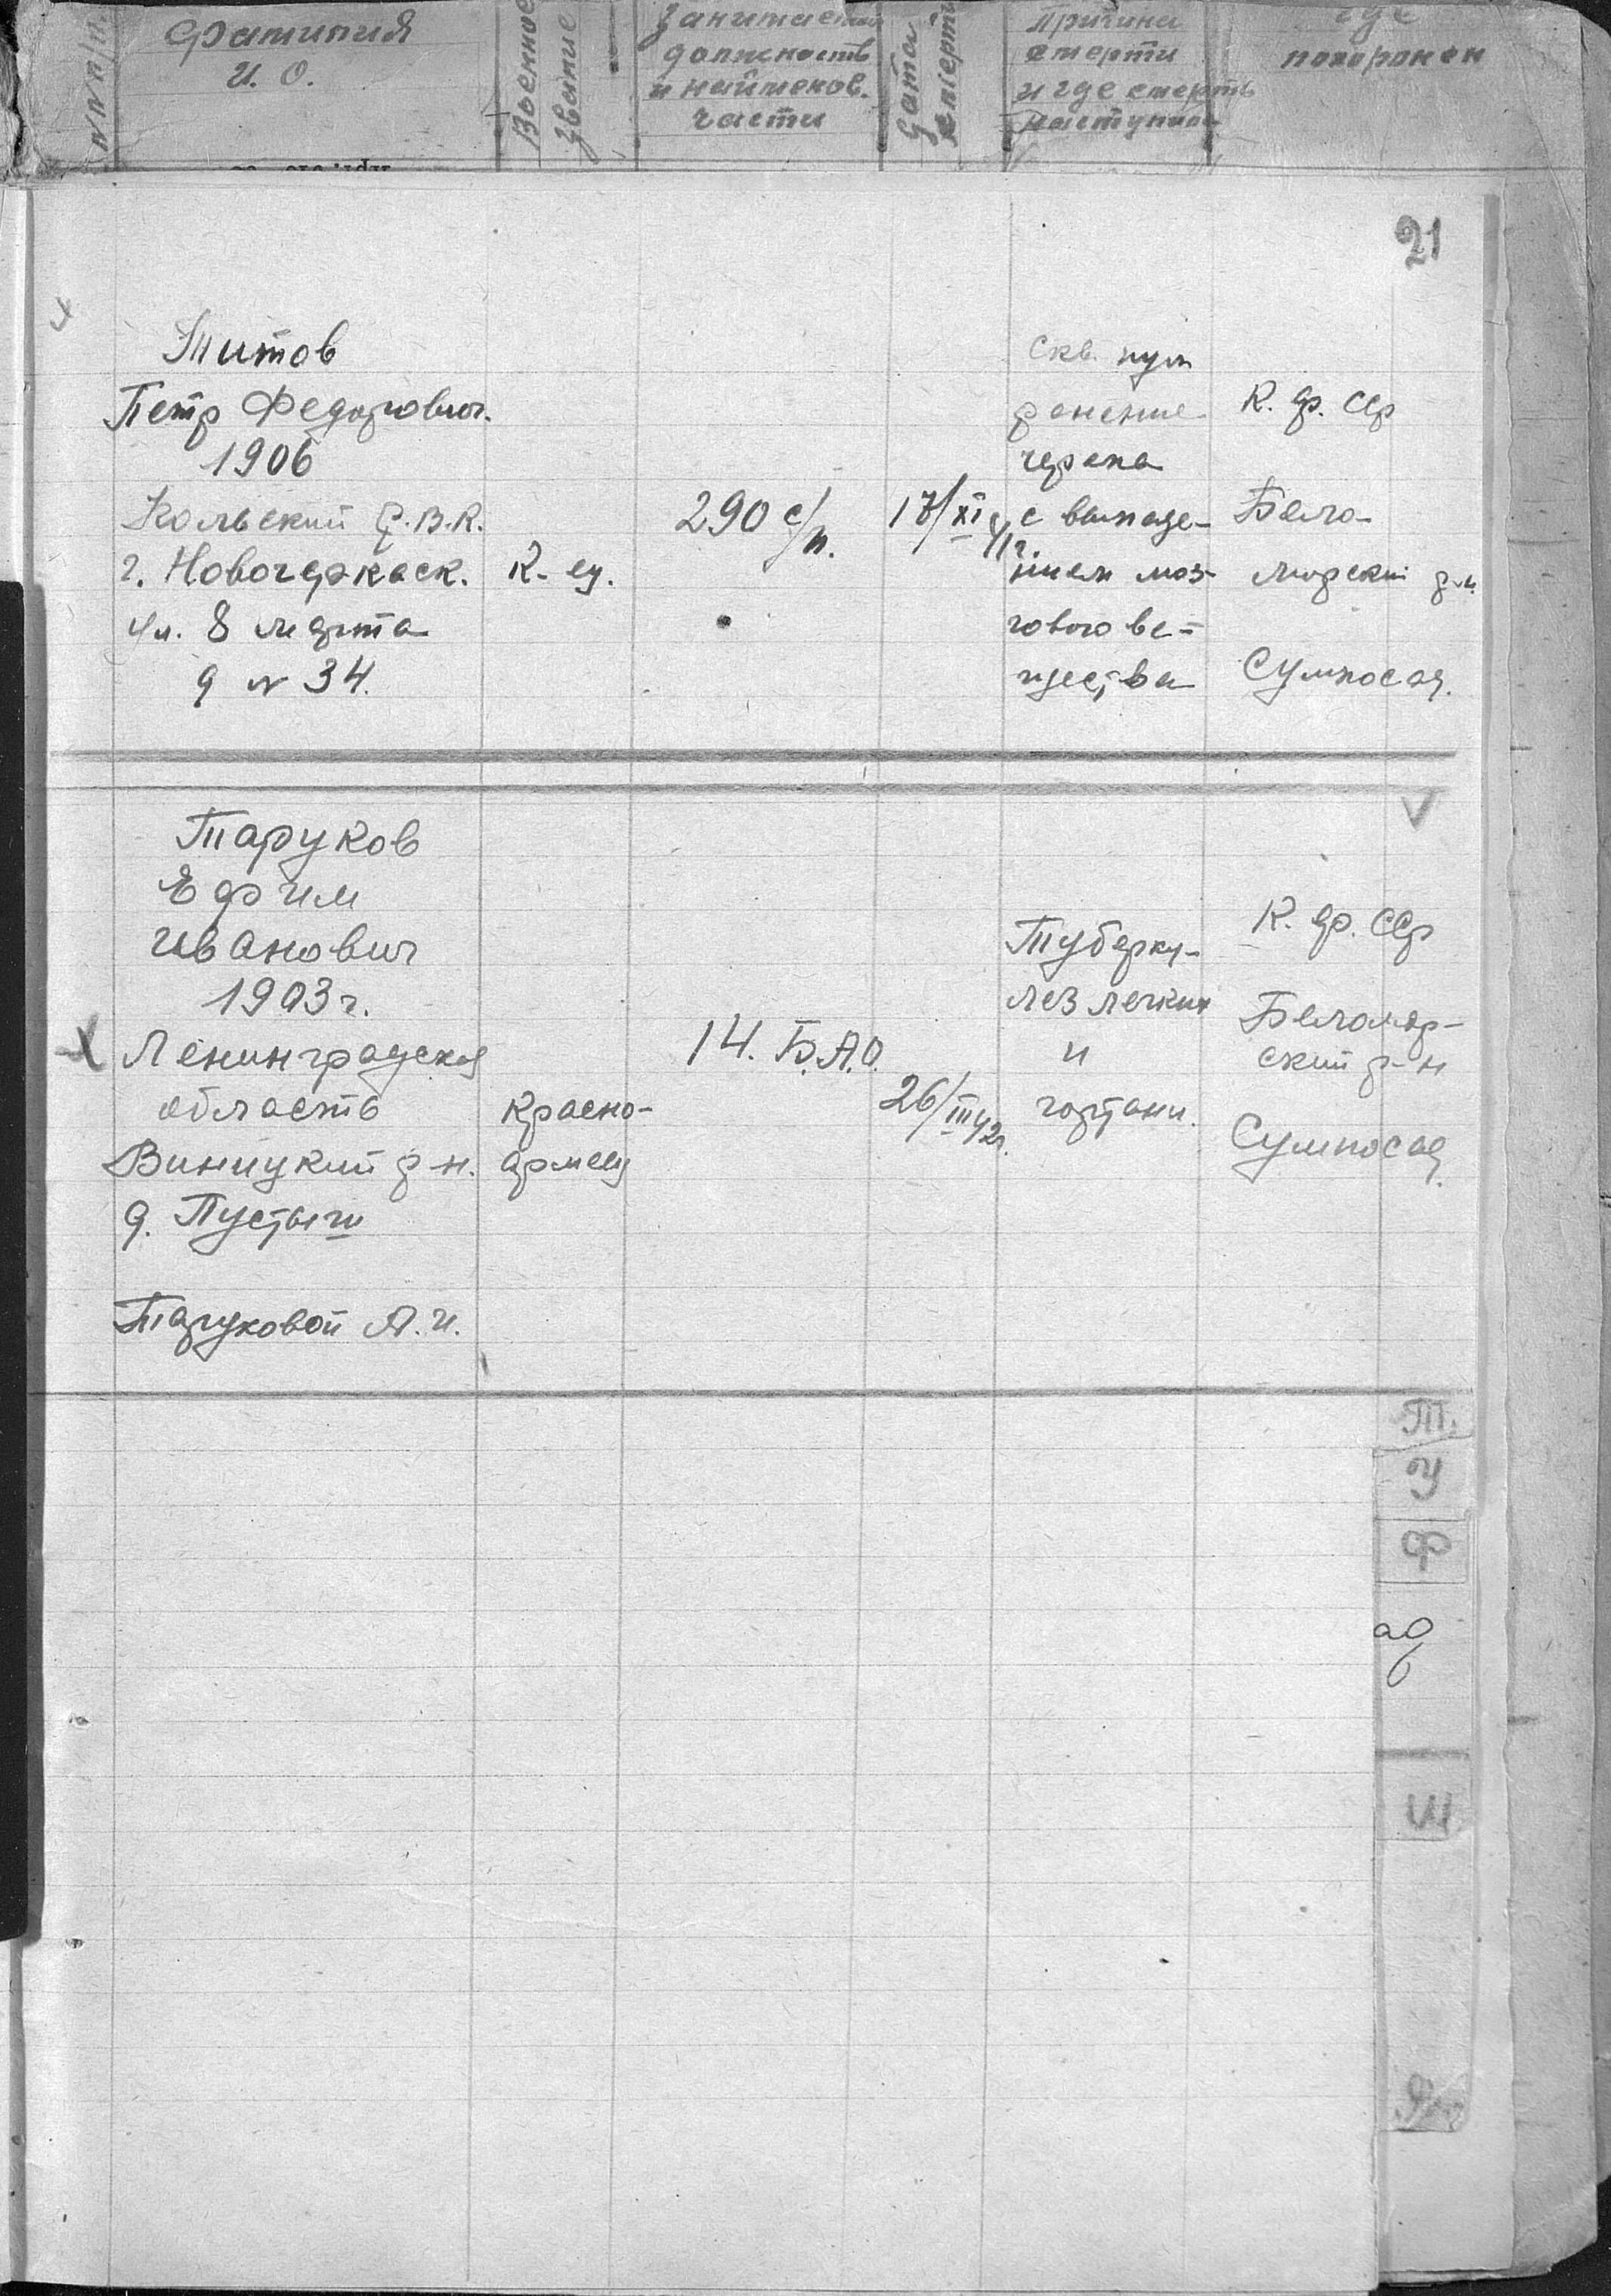 N N п/п.
Фамилия
И. О.
Военное
звание
Занимаемая
должность
и наименов.
части
Дата
смерти
Причина
смерти
и где смерть
наступила
где
похоронен
21
Титов
Петр Федорович.
1906
Кольский Р.В.К.
г. Новочеркаск.
ул. 8 марта
д N 34.
К-ец.
290 с/п.
17/XI 41г.
Скв. пул
ранение
черепа
с выпаде-
нием моз-
гового ве-
щества
К. ф. ССр
Бело-
морский р-н.
Сумпосад.
Таруков
Ефим
Иванович
1903 г.
Ленинградская
область
Винницкий р-н.
д. Пустычи
Таруковой А. И.
Красно-
армеец
14. Б.А.О.
26/III 42г.
Туберку-
лез легких
и
гортани.
К. ф. ССр
Беломор-
ский р-н
Сумпосад.
Т.
У
Ф
Ш